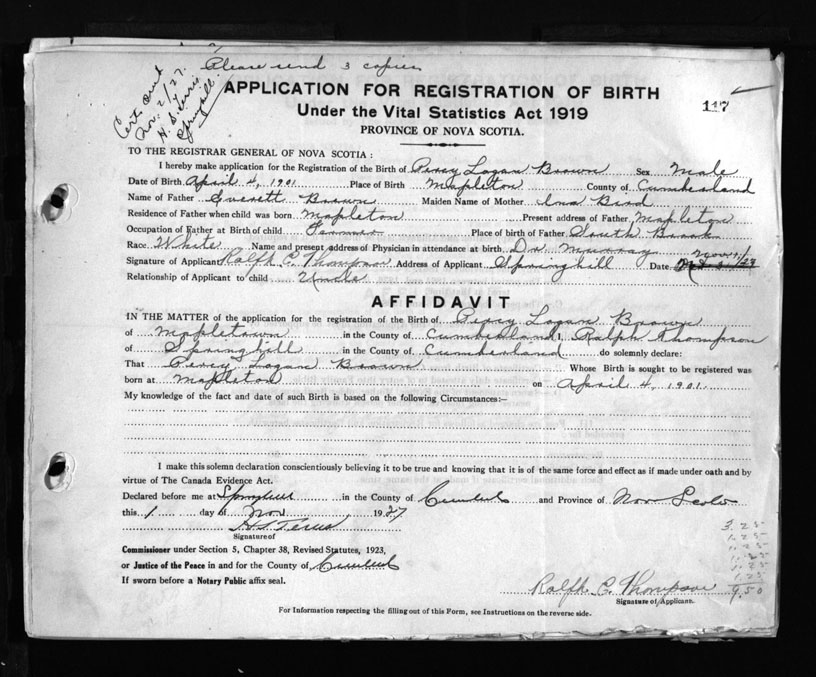 Please send 3 copies
Cert and
Nov. 2/27.
H. S. Terris
Springhill.
APPLICATION FOR REGISTRATION OF BIRTH
117
Under the Vital Statistics Act 1919
PROVINCE OF NOVA SCOTIA.
TO THE REGISTRAR GENERAL OF NOVA SCOTIA :
I hereby make application for the Registration of the Birth of Percy Logan Brown Sex Male
Date of Birth April 4, 1901 Place of Birth Mapleton County of Cumberland
Name of Father Everett Brown Maiden Name of Mother Ina Bird
Residence of Father when child was born Mapleton Present address of Father Mapleton
Occupation of Father at Birth of child Farmer Place of birth of Father South Brook
Race White Name and present address of Physician in attendance at birth Dr Murray
Signature of Applicant Ralph C. Thompson Address of Applicant Springhill Date Nov 1/27
Relationship of Applicant to child Uncle
AFFIDAVIT
IN THE MATTER of the application for the registration of the Birth of Percy Logan Brown
of Mapletown in the County of Cumberland I, Ralph Thompson
of Springhill in the County of Cumberland do solemnly declare:
That Percy Logan Brown Whose Birth is sought to be registered was
born at Mapleton on April 4, 1901.
My knowledge of the fact and date of such Birth is based on the following Circumstances:–
I make this solemn declaration conscientiously believing it to be true and knowing that it is of the same force and effect as if made under oath and by
virtue of The Canada Evidence Act.
Declared before me at Springhill in the County of Cumberland and Province of Nova Scotia
this 1 day of Nov 1927
H S Terris
Signature of
Commissioner under Section 5, Chapter 38, Revised Statutes, 1923,
or Justice of the Peace in and for the County of Cumberland
If sworn before a Notary Public affix seal.
3.25
1.25
1.25
1.25
1.25
1.25
9.50
Ralph C. Thompson
Signature of Applicant.
For Information respecting the filling out of this Form, see Instructions on the reverse side.